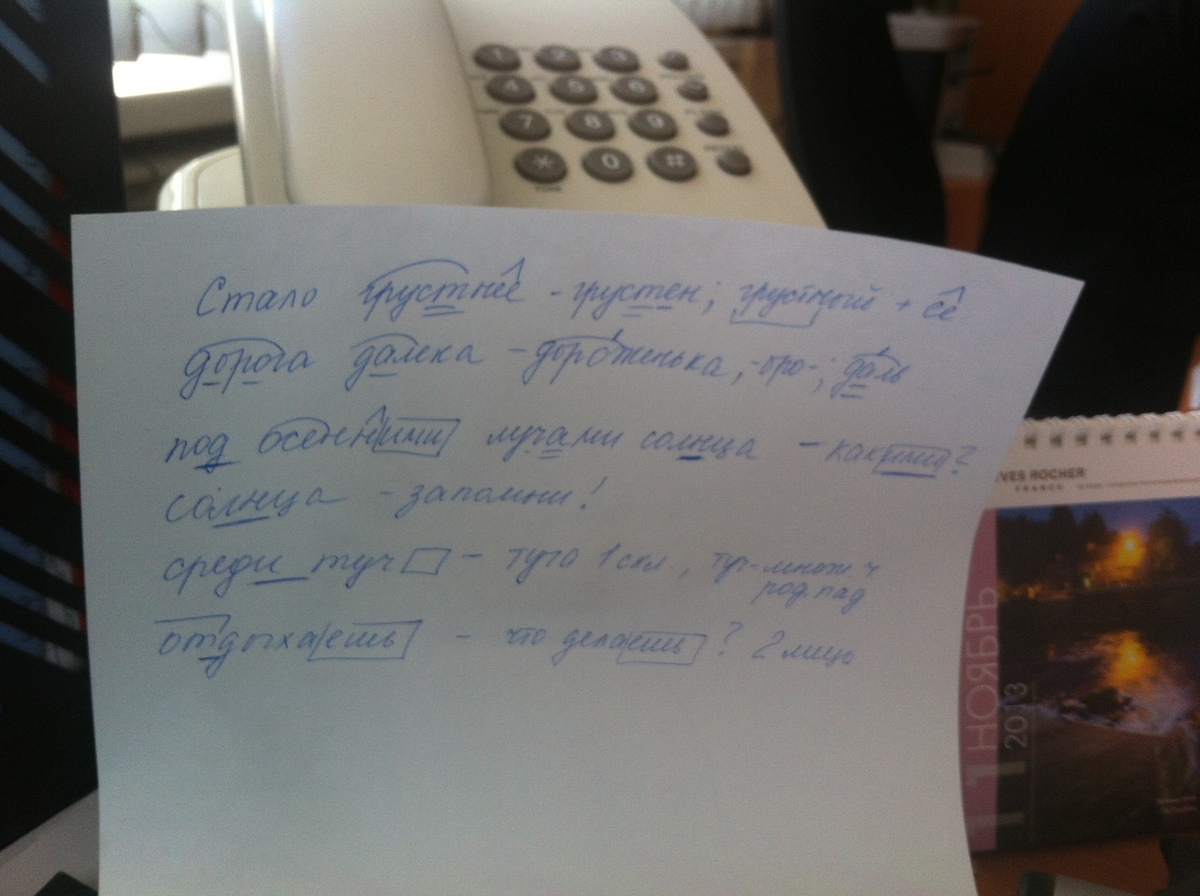 1 2 3
4 5 6
7 8 9
* 0 #
Стало грустнее - грустен; грустный + ее
дорога далека - дороженька, -оро-; даль
под осенними лучами солнца - какими?
солнца - запомни!
среди туч - туча 1 скл., туч - множ. ч.
род. пад
отдыхаешь - что делаешь? 2 лицо
YVES ROCHER
FRANCE
11 НОЯБРЬ
2013